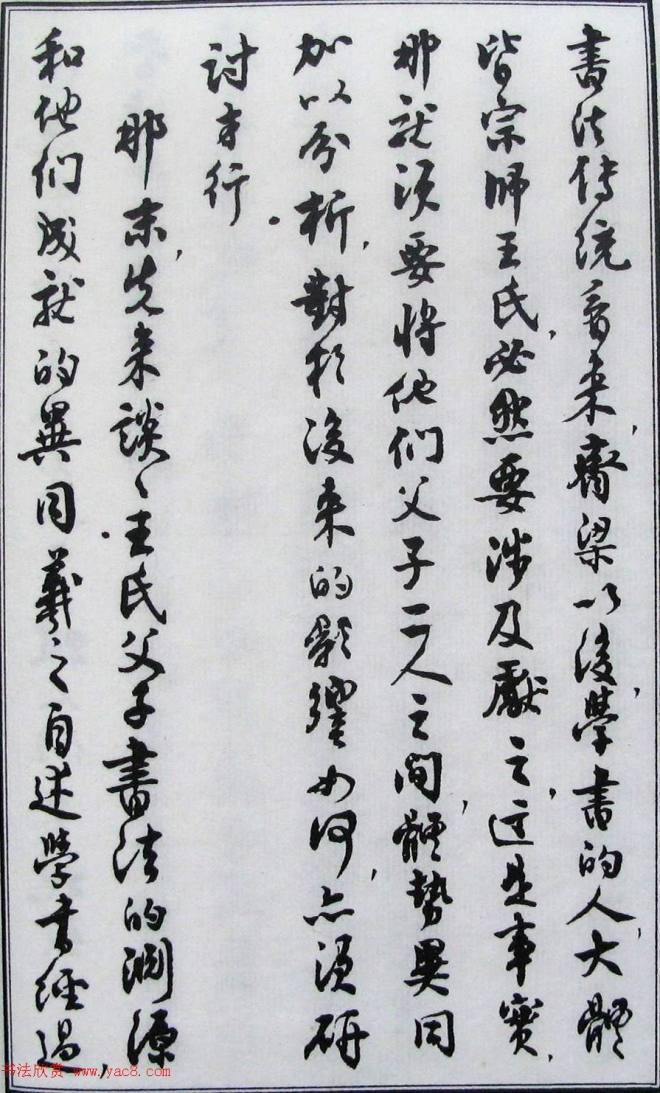 書法傳統看来，齊梁以後，學書的人，大體
皆宗師王氏，必然要涉及獻之，這是事實，
那就須要將他们父子二人之间，體勢異同
加以分析，對於後来的影響如何，亦須研
討才行。
那末，先来談〻王氏父子書法的淵源
和他们成就的異同。羲之自述學書經過，
书法欣赏 www.yac8.com